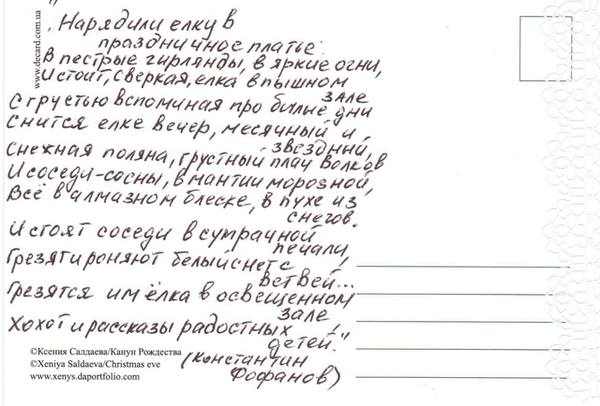 www.decard.com.ua
"Нарядили елку в
праздничное платье:
В пестрые гирлянды, в яркие огни,
И стоит, сверкая, елка в пышном
зале
С грустью вспоминая про былые дни
Снится елке вечер, месячный и
звездный,
Снежная поляна, грустный плач волков
И соседи-сосны, в мантии морозной,
Всё в алмазном блеске, в пухе из
снегов.
И стоят соседи в сумрачной
печали,
Грезят и роняют белый снег с
ветвей...
Грезятся им ёлка в освещенном
зале
Хохот и рассказы радостных
детей."
(Константин
Фофанов)
©Ксения Салдаева/Канун Рождества
©Xeniya Saldaeva/Christmas eve
www.xenys.daportfolio.com